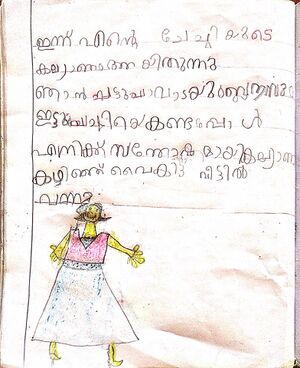 ഇന്ന് എന്റെ ചേച്ചിയുടെ
കല്യാണമായിരുന്നു
ഞാൻ പട്ടുപാവാടയും
ഇട്ടു ചേച്ചിയെ കണ്ടപ്പോൾ
എനിക്ക് സന്തോഷമായി കല്യാണം
കഴിഞ്ഞ് വൈകിട്ട് വീട്ടിൽ
വന്നു